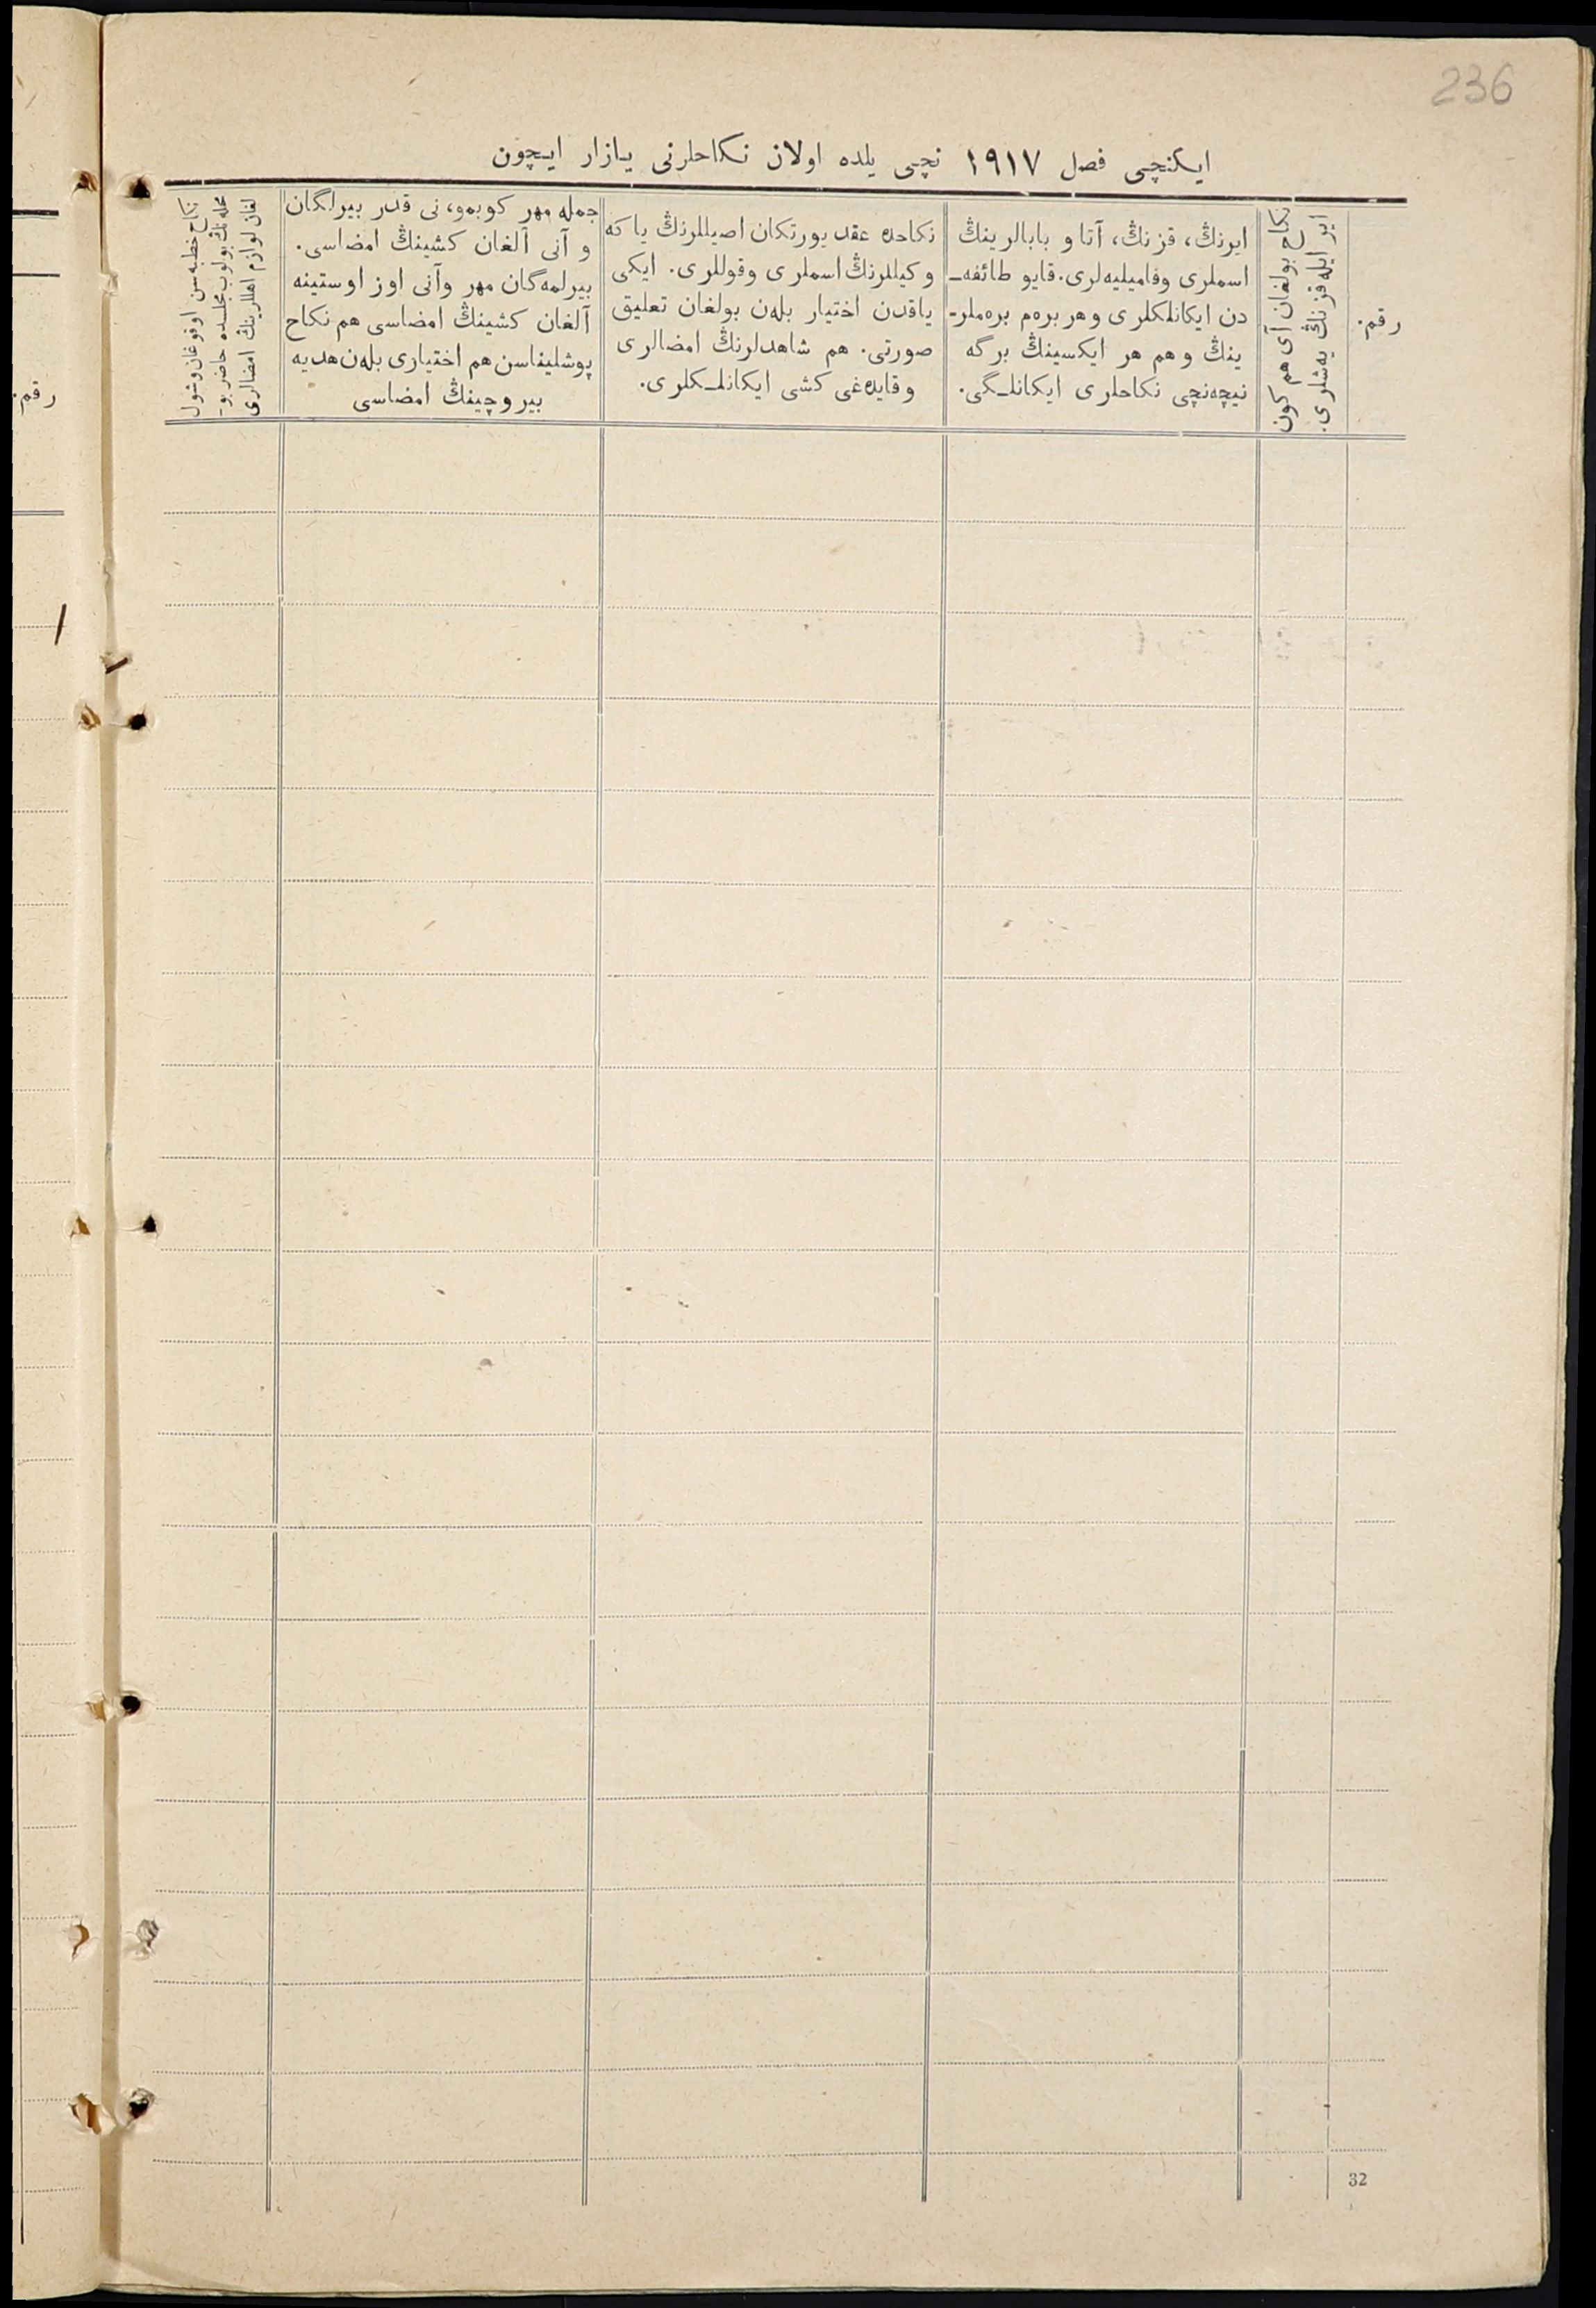 236
ایکنچی فصل ١٩١٧ نچی یلده اولان نکاحلرنی یازار ایچون
رقم.
ایر ایله قزنڭ یه‌شلری.
نکاح بولغان آی هم کون
ایرنڭ، قزنڭ، آتا و بابالرینڭ
اسملری وفامیلیه‌لری. قایو طائفه‌ـ
دن ایکانلکلری و هر بره‌م بره‌ملرـ
ینڭ و هم هر ایکسینڭ برگه
نیچه‌نچی نکاحلری ایکانلـگی.
نکاحده عقد یورتکان اصیللرنڭ یا که
و کیللرنڭ اسملری وقوللری. ایکی
یاقدن اختیار بله‌ن بولغان تعلیق
صورتی. هم شاهدلرنڭ امضالری
وقایده‌غی کشی ایکانلـکلری.
جمله مهر کوبمو، نی قدر بیرلگان
و آنی آلغان کشینڭ امضاسی.
بیرلمه‌گان مهر وآنی اوز اوستینه
آلغان کشینڭ امضاسی هم نکاح
پوشلیناسن هم اختیاری بله‌ن هدیه
بیروچینڭ امضاسی
نکاح خطبه‌سن اوقوغان وشول
محله‌نڭ بولوب مجلسده حاضر بوـ
لغان لوازم اهللرینڭ امضالری
رقم.
32